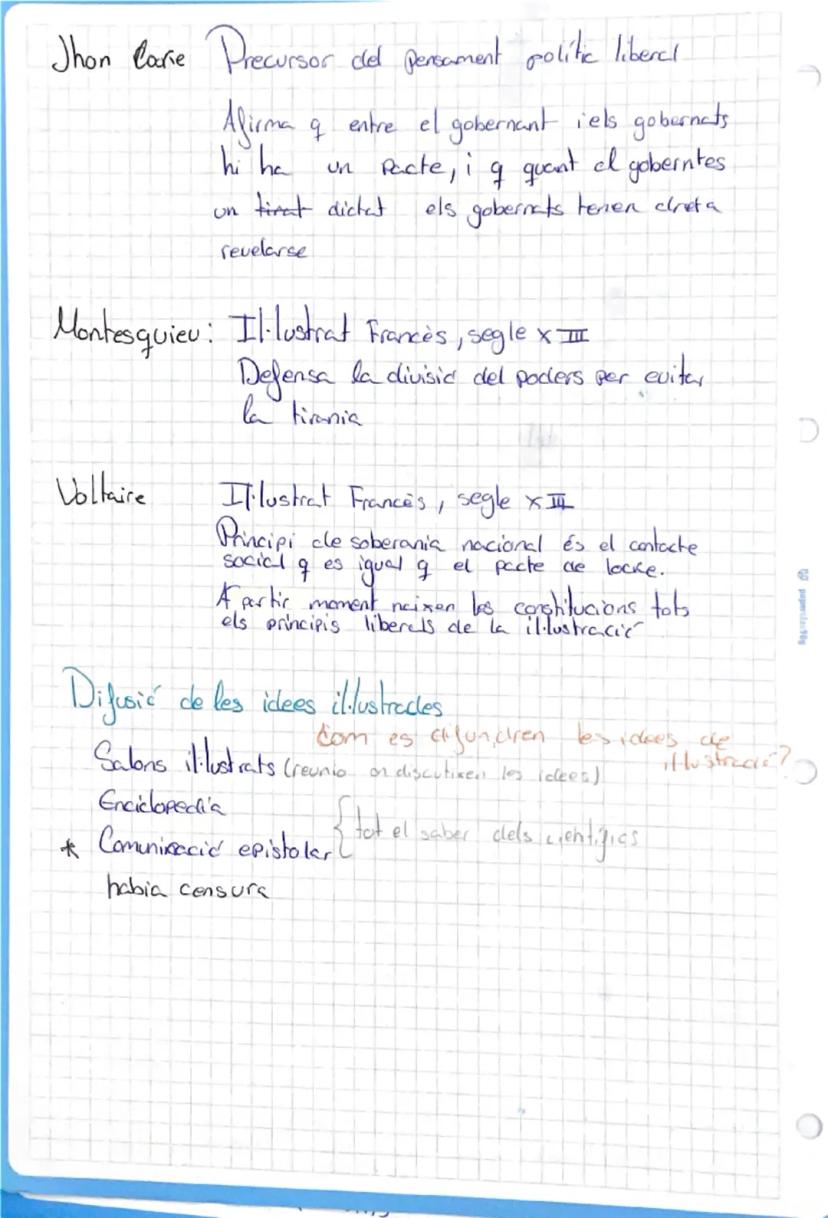 Jhon Locke Precursor del pensament polític liberal
Afirma q entre el gobernant i els gobernats
hi ha un Pacte, i q quant el goberntes
un tirat dictat els gobernats tenen dreta
revelarse
Montesquieu: Il·lustrat Francès, segle XIII
Defensa la divisió del poders per evitar
la tirania
Voltaire Il·lustrat Francès, segle XIII
Principi de soberania nacional és el contacte
social q es igual q el pacte de locke.
A partir moment neixen les constitucions tots
els principis liberals de la il·lustració
Difusió de les idees il·lustrades
Com es difundiren les idees de
il·lustració?
Salons il·lustrats (reunio on discutixen les idees)
Enciclopedia
{tot el saber dels científics
* Comunicació epistolar
habia censura